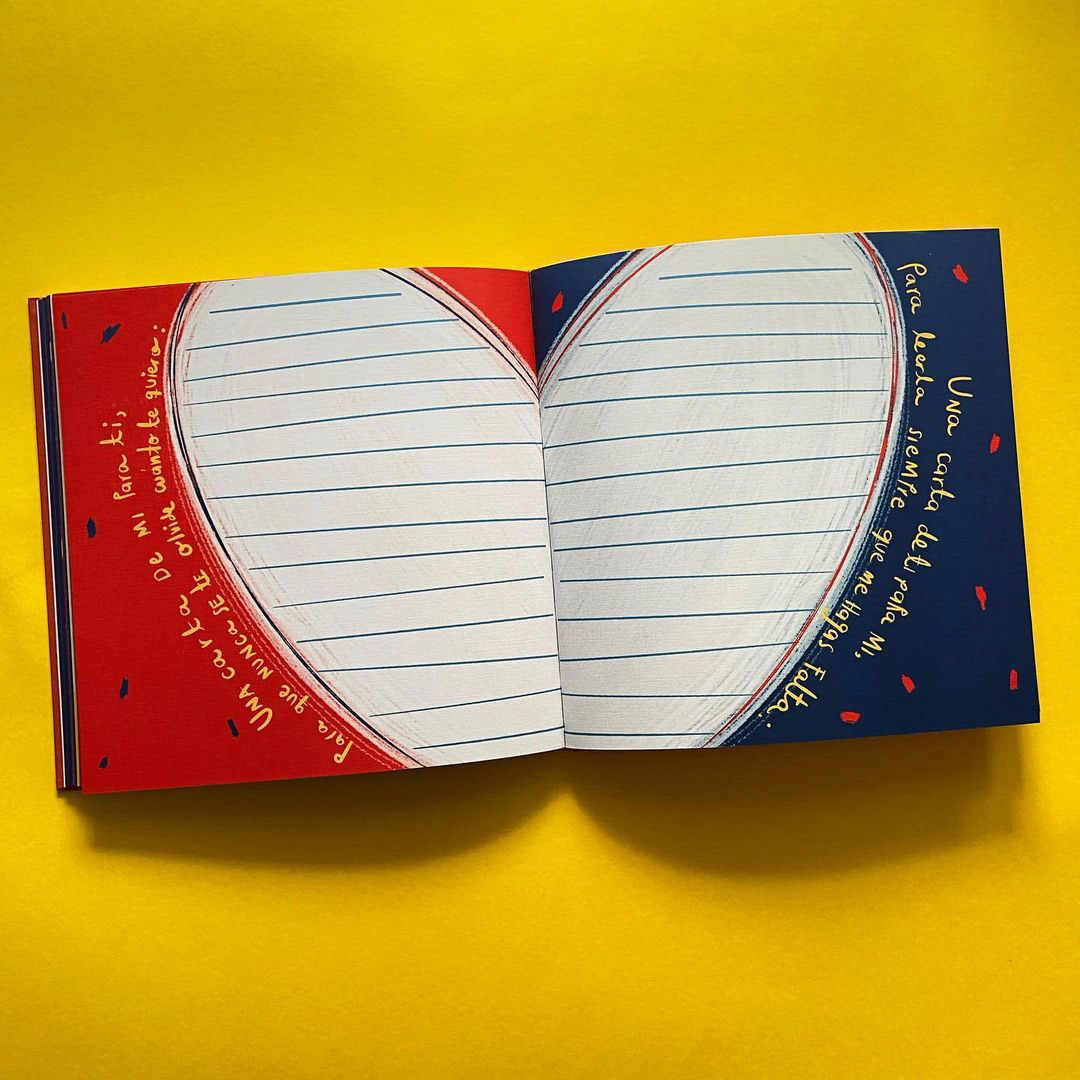 UNA carta DE MI Para ti,
Para que NUNCA SE te olvide cuánto te quiero:
UNA carta de ti paRa MI,
Para leerla sieMPre que me Hagas Falta: